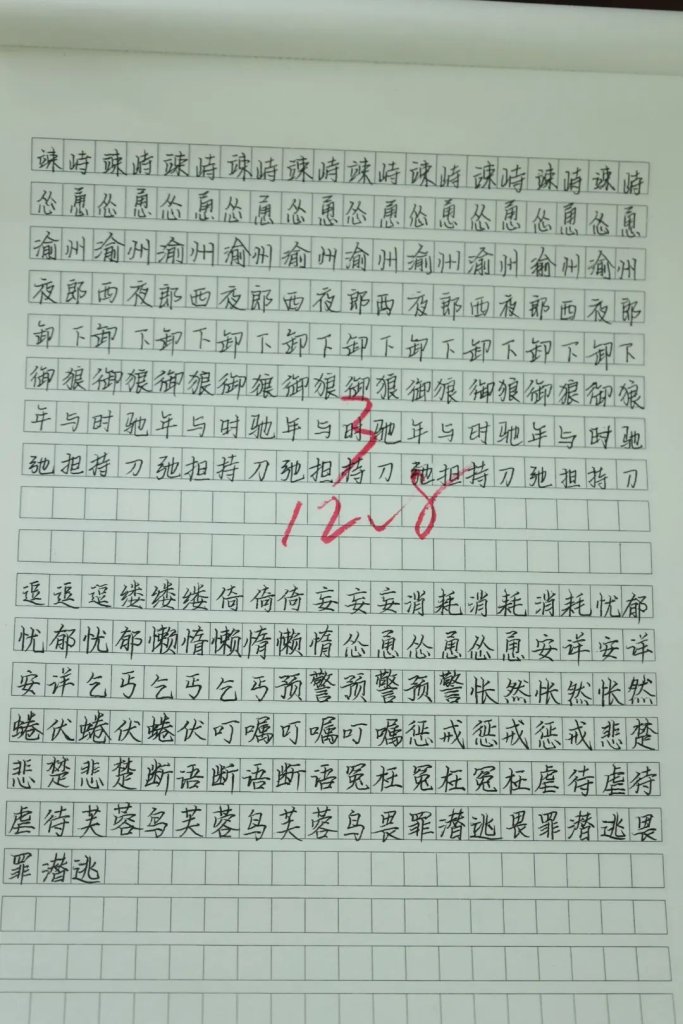 竦峙竦峙竦峙竦峙竦峙竦峙竦峙竦峙竦峙竦峙
怂恿怂恿怂恿怂恿怂恿怂恿怂恿怂恿怂恿怂恿
渝州渝州渝州渝州渝州渝州渝州渝州渝州渝州
夜郎西夜郎西夜郎西夜郎西夜郎西夜郎西夜郎
卸下卸下卸下卸下卸下卸下卸下卸下卸下卸下
御狼御狼御狼御狼御狼御狼御狼御狼御狼御狼
年与时驰年与时驰年与时驰年与时驰年与时驰
弛担持刀弛担持刀弛担持刀弛担持刀弛担持刀
3
12、8
逗逗逗缕缕缕倚倚倚妄妄妄消耗消耗消耗忧郁
忧郁忧郁懒惰懒惰懒惰怂恿怂恿怂恿安详安详
安详乞丐乞丐乞丐预警预警预警怅然怅然怅然
蜷伏蜷伏蜷伏叮嘱叮嘱叮嘱惩戒惩戒惩戒悲楚
悲楚悲楚断语断语断语冤枉冤枉冤枉虐待虐待
虐待芙蓉鸟芙蓉鸟芙蓉鸟畏罪潜逃畏罪潜逃畏
罪潜逃